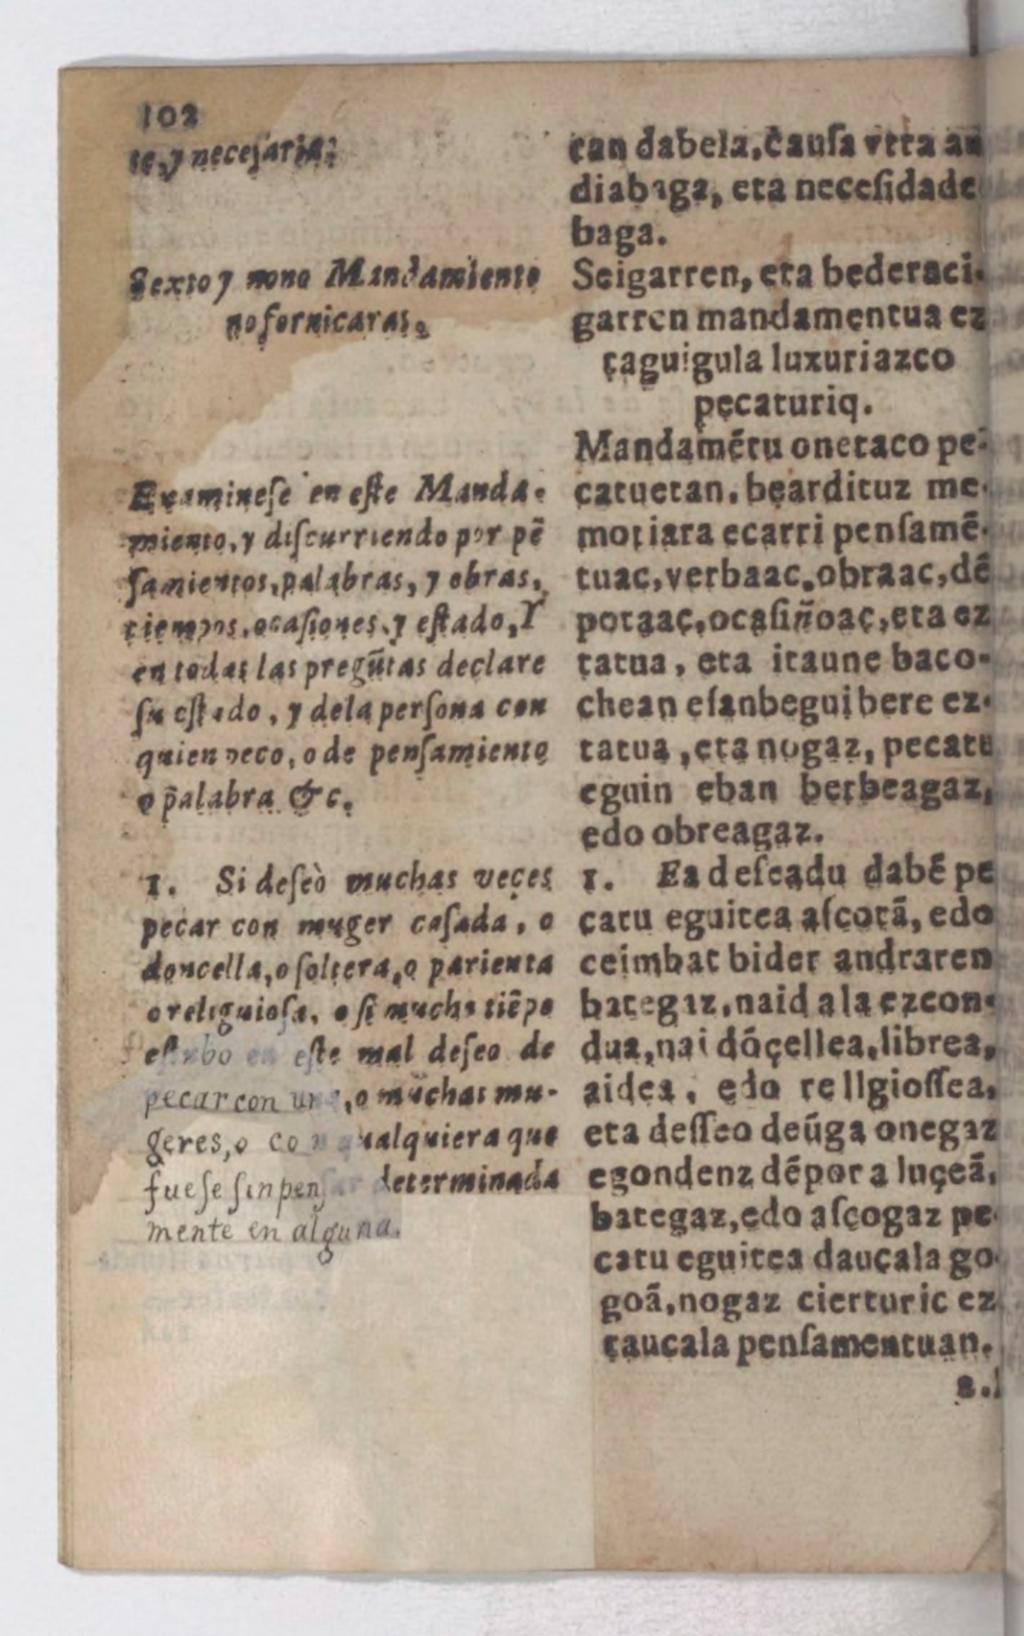 102
te, y necesaria;
Sexto y nono Mandamiento
no fornicaras.
Examineſe en eſte Manda-
miento, y diſcurriendo por pẽ
ſamientos, palabras, y obras,
tiempos, ocaſiones, y eſtado, Y
en todas las pregũtas declare
ſu eſtado, y de la perſona con
quien peco, o de penſamiento
o palabra &c.
1. Si deſeò muchas veçes
pecar con muger caſada, o
doncella, o ſoltera, o parienta
o religuioſa, o ſi mucho tiẽpo
eſtubo en eſte mal deſeo de
pecar con una, o muchas mu-
geres, o con qualquiera que
fueſe ſin penſar determinada
mente en alguna.
can dabela, cauſa vtra an
diabaga, eta neceſidade
baga.
Seigarren, eta bederaci-
garren mandamentua ez
çaguigula luxuriazco
pecaturiq.
Mandamẽtu onetaco pe-
catuetan, beardituz me-
moriara ecarri penſamẽ-
tuac, verbaac, obraac, dẽ
poraac, ocaſiñoac, eta ez
tatua, eta itaune baco-
chean eſanbegui bere ez-
tatua, eta nogaz, pecatu
eguin eban berbeagaz,
edo obreagaz.
1. Ea deſeadu dabẽ pe
catu eguitea aſcotã, edo
ceimbat bider andraren
bategaz, naid ala ezcon-
dua, nai dóçellea, librea,
aidea, edo rellgioſſea,
eta deſſeo deũga onegaz
egondenz dẽpora luçeã,
bategaz, edo aſcogaz pe-
catu eguitea dauçala go-
goã, nogaz cierturic ez
çaucala penſamentuan.
2.